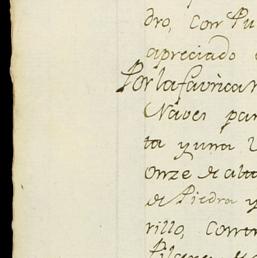 dro, con Pu
apreciado
Por la favrica
Naves par
ta y una
onze de alto
de Piedra y
rillo, con